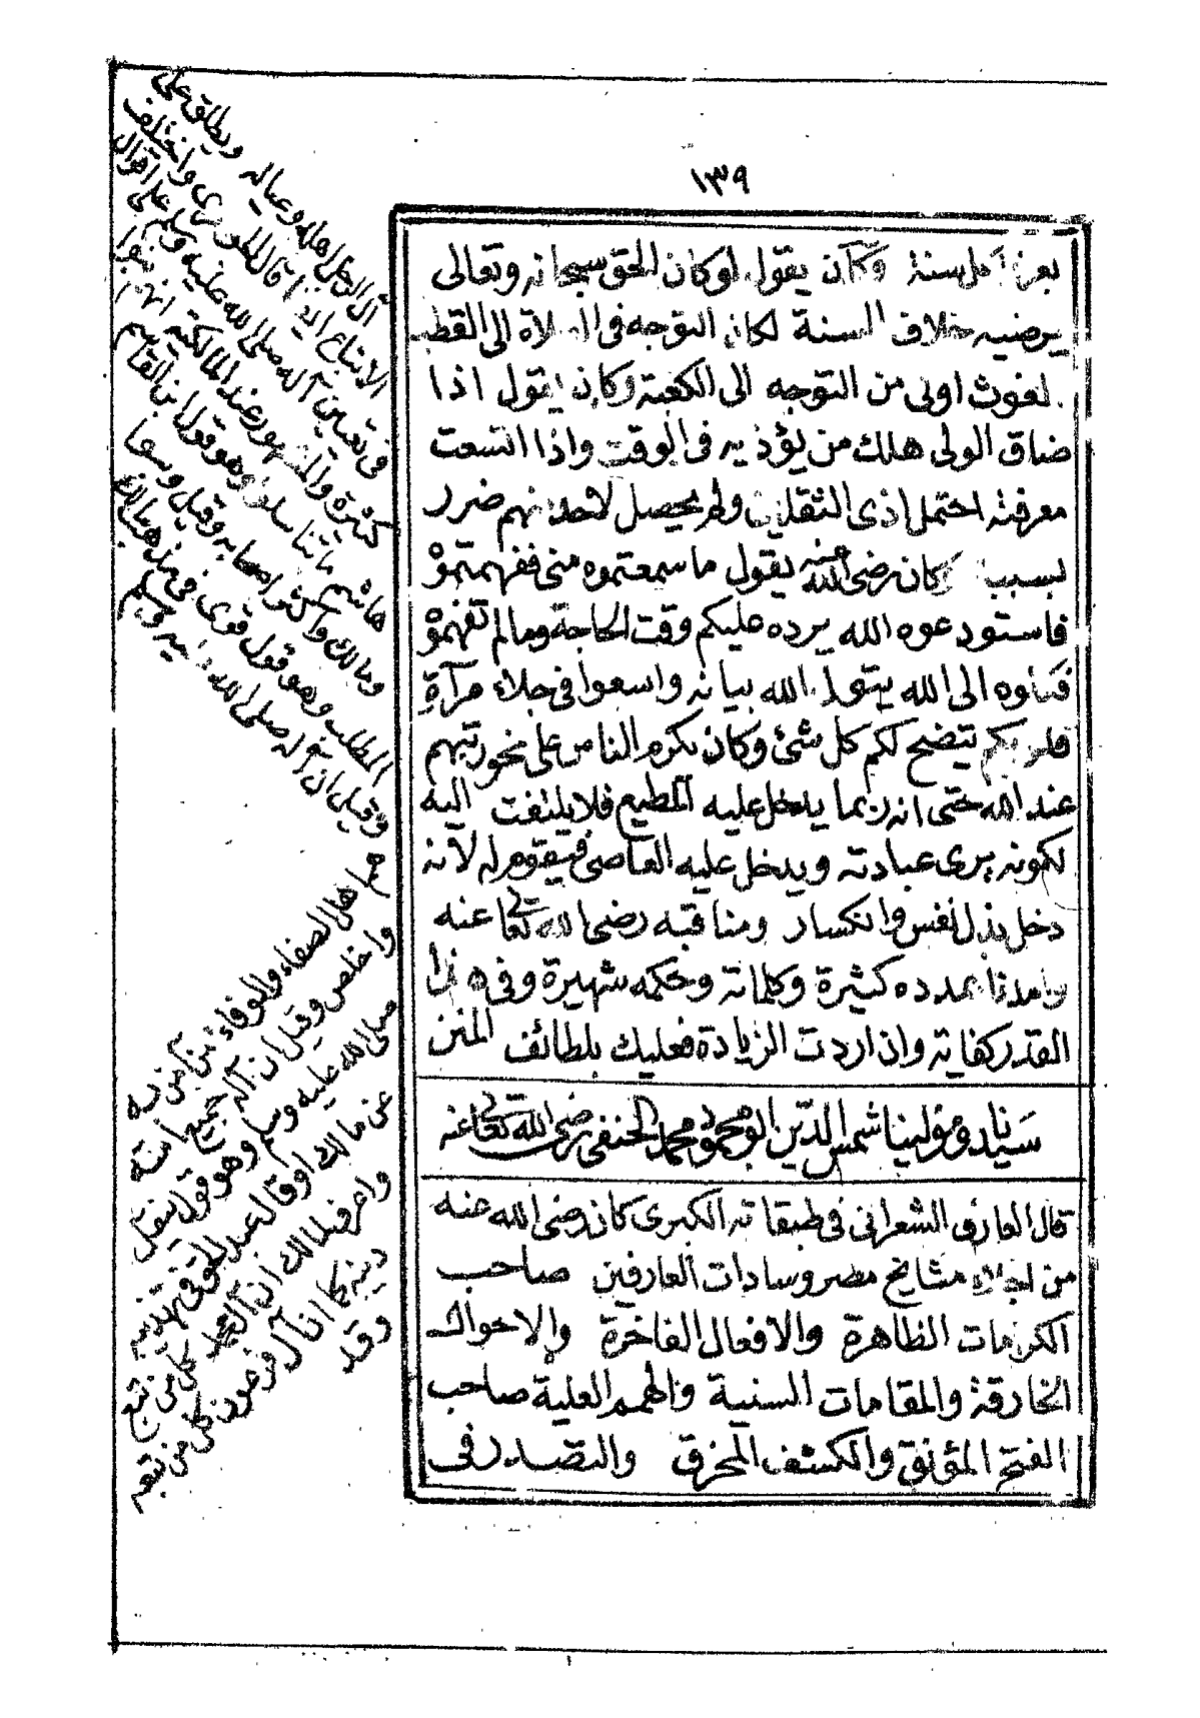 ١٣٩
وكان يقول لو كان الحق سبحانه وتعالى
يرضيه خلاف السنة لكان التوجه فى الصلاة الى القطب
الغوث اولى من التوجه الى الكعبة وكان يقول اذا
ضاق الولى هلك من يؤذيه فى الوقت واذا اتسعت
معرفته احتمل اذى الثقلين ولم يحصل لاحد منهم ضرر
بسببه كان رضى الله عنه يقول ما سمعتموه منى ففهمتموه
فاستودعوه الله يرده عليكم وقت الحاجة ومالم تفهموه
فكلوه الى الله يتولى الله بيانه واسعوا فى جلاء مرآة
قلوبكم يتضح لكم كل شئ وكان يكرم الناس على نحو رتبهم
عند الله حتى انه ربما يدخل عليه المطيع فلا يلتفت اليه
لكونه يرى عبادته ويدخل عليه العاصى فيقوم له لأنه
دخل بذل نفس وانكسار ومناقبه رضى الله تعالى عنه
وامدنا بمدده كثيرة وكلماته وحكمه شهيرة وفى هذا
القدر كفاية وان اردت الزيادة فعليك بلطائف المنن
سيدنا ومولينا شمس الدين ابو محمود محمد الحنفى رضى الله تعالى عنه
قال العارف الشعرانى فى طبقاته الكبرى كان رضى الله عنه
من اجلاء مشايخ مصر وسادات العارفين صاحب
الكرامات الظاهرة والافعال الفاخرة والاحوال
الخارقة والمقامات السنية والهمم العلية صاحب
الفتح المؤنق والكشف المخرق والتصدر فى
آل الرجل اهله وعياله ويطلق على
الاتباع ايضا قال واختلف
فى تعيين آله صلى الله عليه وسلم على اقوال
كثيرة والمشهور عند المالكية انهم بنوا
هاشم ما تناسلوا وهو قول ابن القاسم
ومالك واكثر اصحابه وقيل وبنوا
المطلب وهو قول قوى فى مذهب مالك
وقيل ان آله صلى الله عليه وسلم
هم اهل الصفاء والوفاء من آمن به
واخلص وقيل ان آله جميع امته
صلى الله عليه وسلم وهو قول ينقل
عن مالك وقال عبد الحق فى تهذيبه
واعرف لمالك ان آل محمد كل من تبع
دينه كما ان آل فرعون كل من تبعه
وقد